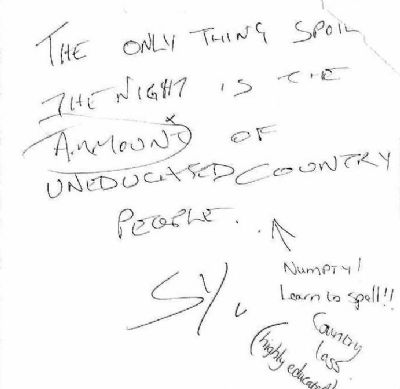 THE ONLY THING SPOIL
THE NIGHT IS THE
AMMOUNT OF
UNEDUCATED COUNTRY
PEOPLE.
SY.
Numpty!
Learn to spell!!
Country
lass.
(highly educated!)